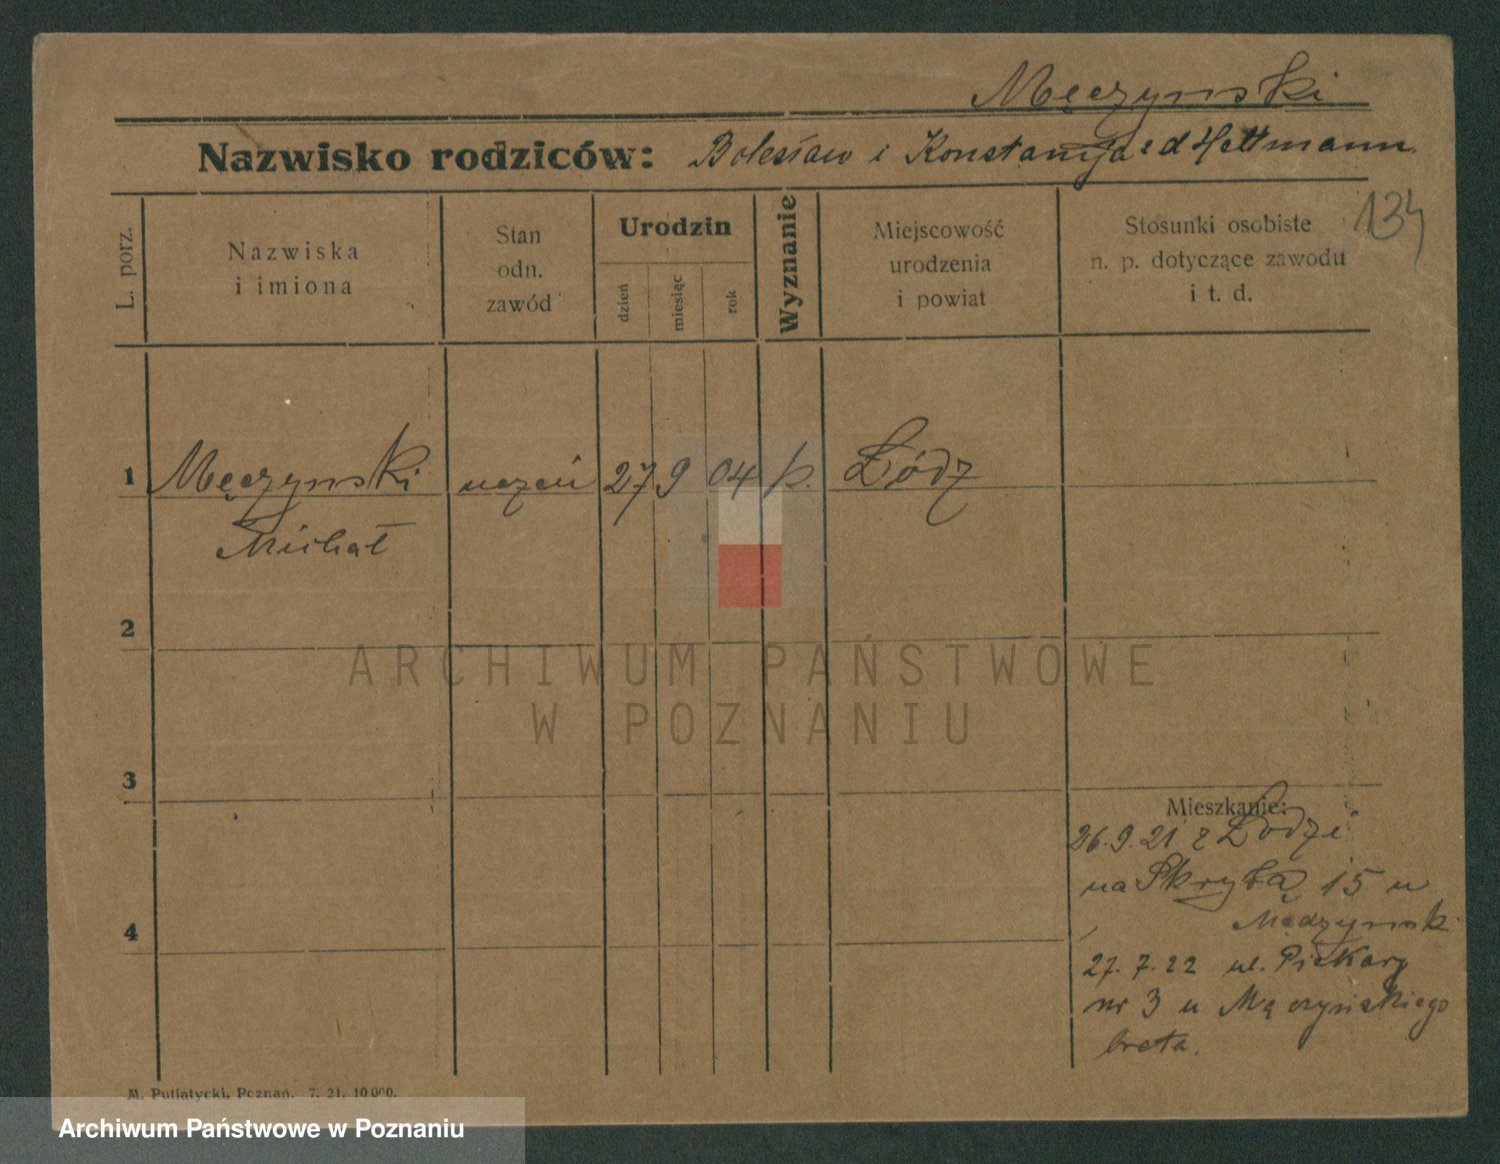 Męczynski
Nazwisko rodziców: Bolesław i Konstancja z d Hettmann.
134
L. porz.
Nazwiska
i imiona
Stan
odn.
zawód
Urodzin
dzień
miesiąc
rok
Wyznanie
Miejscowość
urodzenia
i powiat
Stosunki osobiste
n. p. dotyczące zawodu
i t. d.
1 Męczynski uczeń 27 9 04 k. Łódz
Michał
2
3
4
Mieszkanie:
26.9.21 z Łodzi
na Skrytą 15 u
Mędzynsk
27.7.22 ul. Piekary
nr 3 u Męczyńskiego
brata.
M. Putiatycki, Poznań. 7. 21. 10 000.
ARCHIWUM PAŃSTWOWE
W POZNANIU
Archiwum Państwowe w Poznaniu